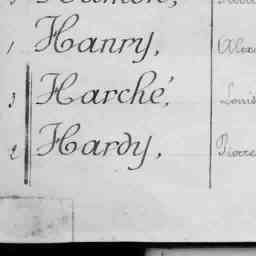 1 Hanry, Alex
3 Harché, Louis
2 Hardy, Pierre